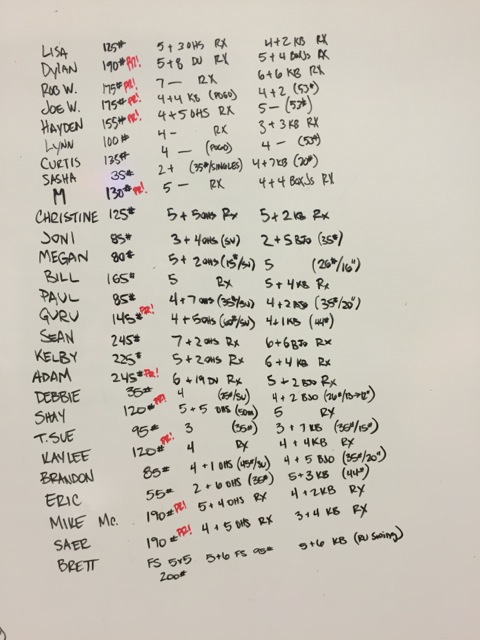 LISA 125# 5+3 OHS RX 4+2 KB RX
Dylan 190# PR! 5+8 DU RX 5+4 BOXJs RX
ROB W. 175# PR! 7 — RX 6+6 KB RX
JOE W. 175# PR! 4+4 KB (POGO) 4+2 (53#)
HAYDEN 155# PR! 4+5 OHS RX 5 — (53#)
LYNN 100# 4 — RX 3+3 KB RX
CURTIS 135# 4 — (POGO) 4 — (53#)
SASHA 35# 2+ (35#/SINGLES) 4+7 KB (20#)
M 130# PR! 5 — RX 4+4 BOXJs RX
CHRISTINE 125# 5+5 OHS Rx 5+2 KB Rx
JONI 85# 3+4 OHS (SU) 2+5 BJO (35#)
MEGAN 80# 5+2 OHS (15#/SU) 5 (26#/16")
BILL 165# 5 RX 5+4 KB Rx
PAUL 85# 4+7 OHS (35#/SU) 4+2 BJO (35#/20")
GURU 145# PR! 4+5 OHS (65#/SU) 4+1 KB (44#)
SEAN 245# 7+2 OHS Rx 6+6 BJO Rx
KELBY 225# 5+2 OHS Rx 6+4 KB Rx
ADAM 245# PR! 6+19 DU Rx 5+2 BJO Rx
DEBBIE 35# 4 (35#/SU) 4+2 BJO
SHAY 120# PR! 5+5 OHS 5 RX
T. SUE 95# 3 (35#) 3+7 KB (35#/15#)
KAYLEE 120# PR! 4 RX 4+4 KB RX
BRANDON 85# 4+1 OHS (45#/SU) 4+5 BJO (35#/20")
ERIC 55# 2+6 OHS (35#) 5+3 KB (44#)
MIKE Mc. 190# PR! 5+4 OHS RX 4+2 KB RX
SAER 190# PR! 4+5 OHS RX 3+4 KB RX
BRETT FS 5x5 5+6 FS 95# 5+6 KB (RU Swing)
200#